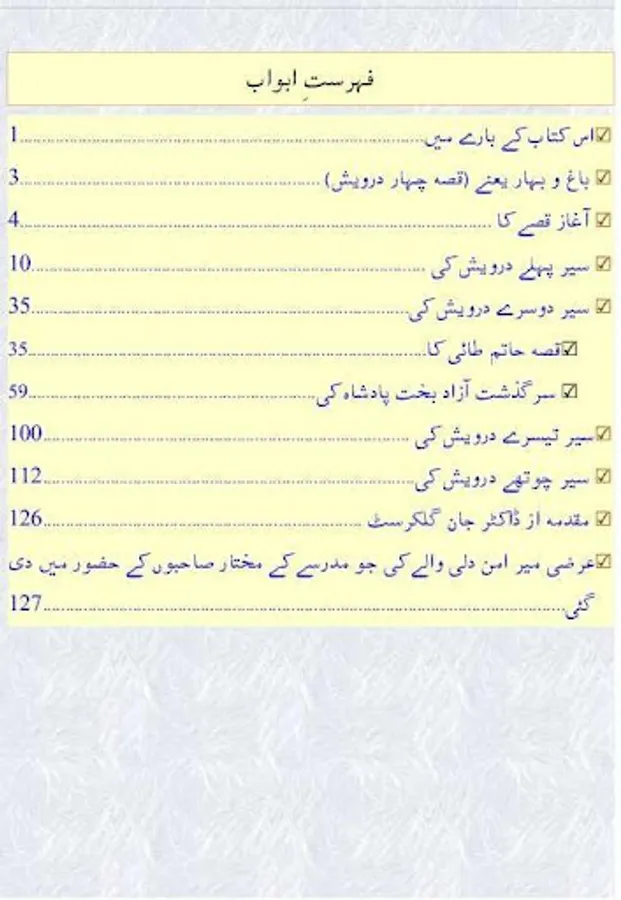 فہرستِ ابواب
☑اس کتاب کے بارے میں........................................1
☑ باغ و بہار یعنے (قصہ چہار درویش) ........................................3
☑ آغاز قصے کا ........................................4
☑ سیر پہلے درویش کی ........................................10
☑ سیر دوسرے درویش کی........................................35
☑قصہ حاتم طائی کا........................................35
☑ سرگذشت آزاد بخت پادشاہ کی........................................59
☑سیر تیسرے درویش کی ........................................100
☑ سیر چوتھے درویش کی........................................112
☑ مقدمہ از ڈاکٹر جان گلکرسٹ ........................................126
☑عرضی میر امن دلی والے کی جو مدرسے کے مختار صاحبوں کے حضور میں دی
گئی........................................127